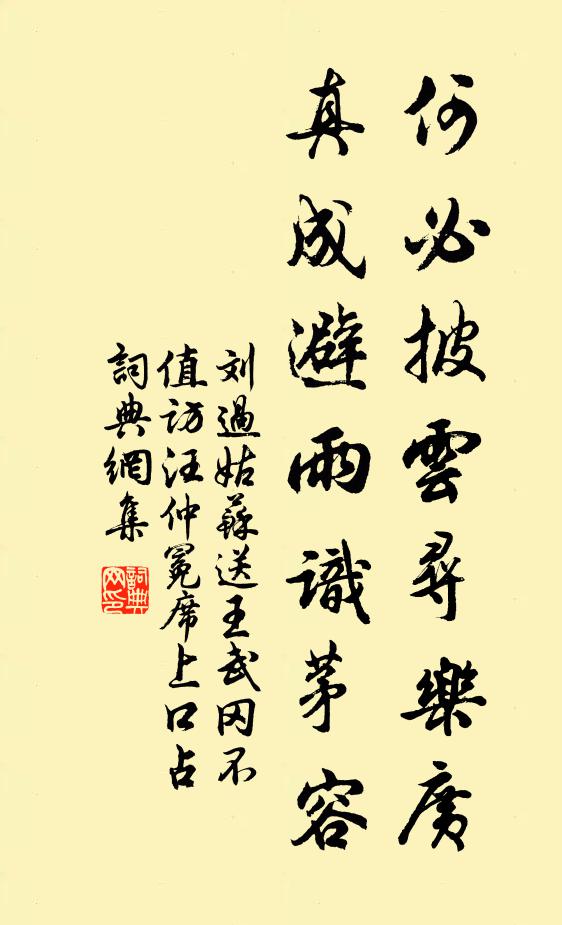 何必披雲尋樂廣
真成避雨識茅容
刘過姑蘇送王武冈不
值访汪仲冕席上口占
詞典網集
詞典
网印